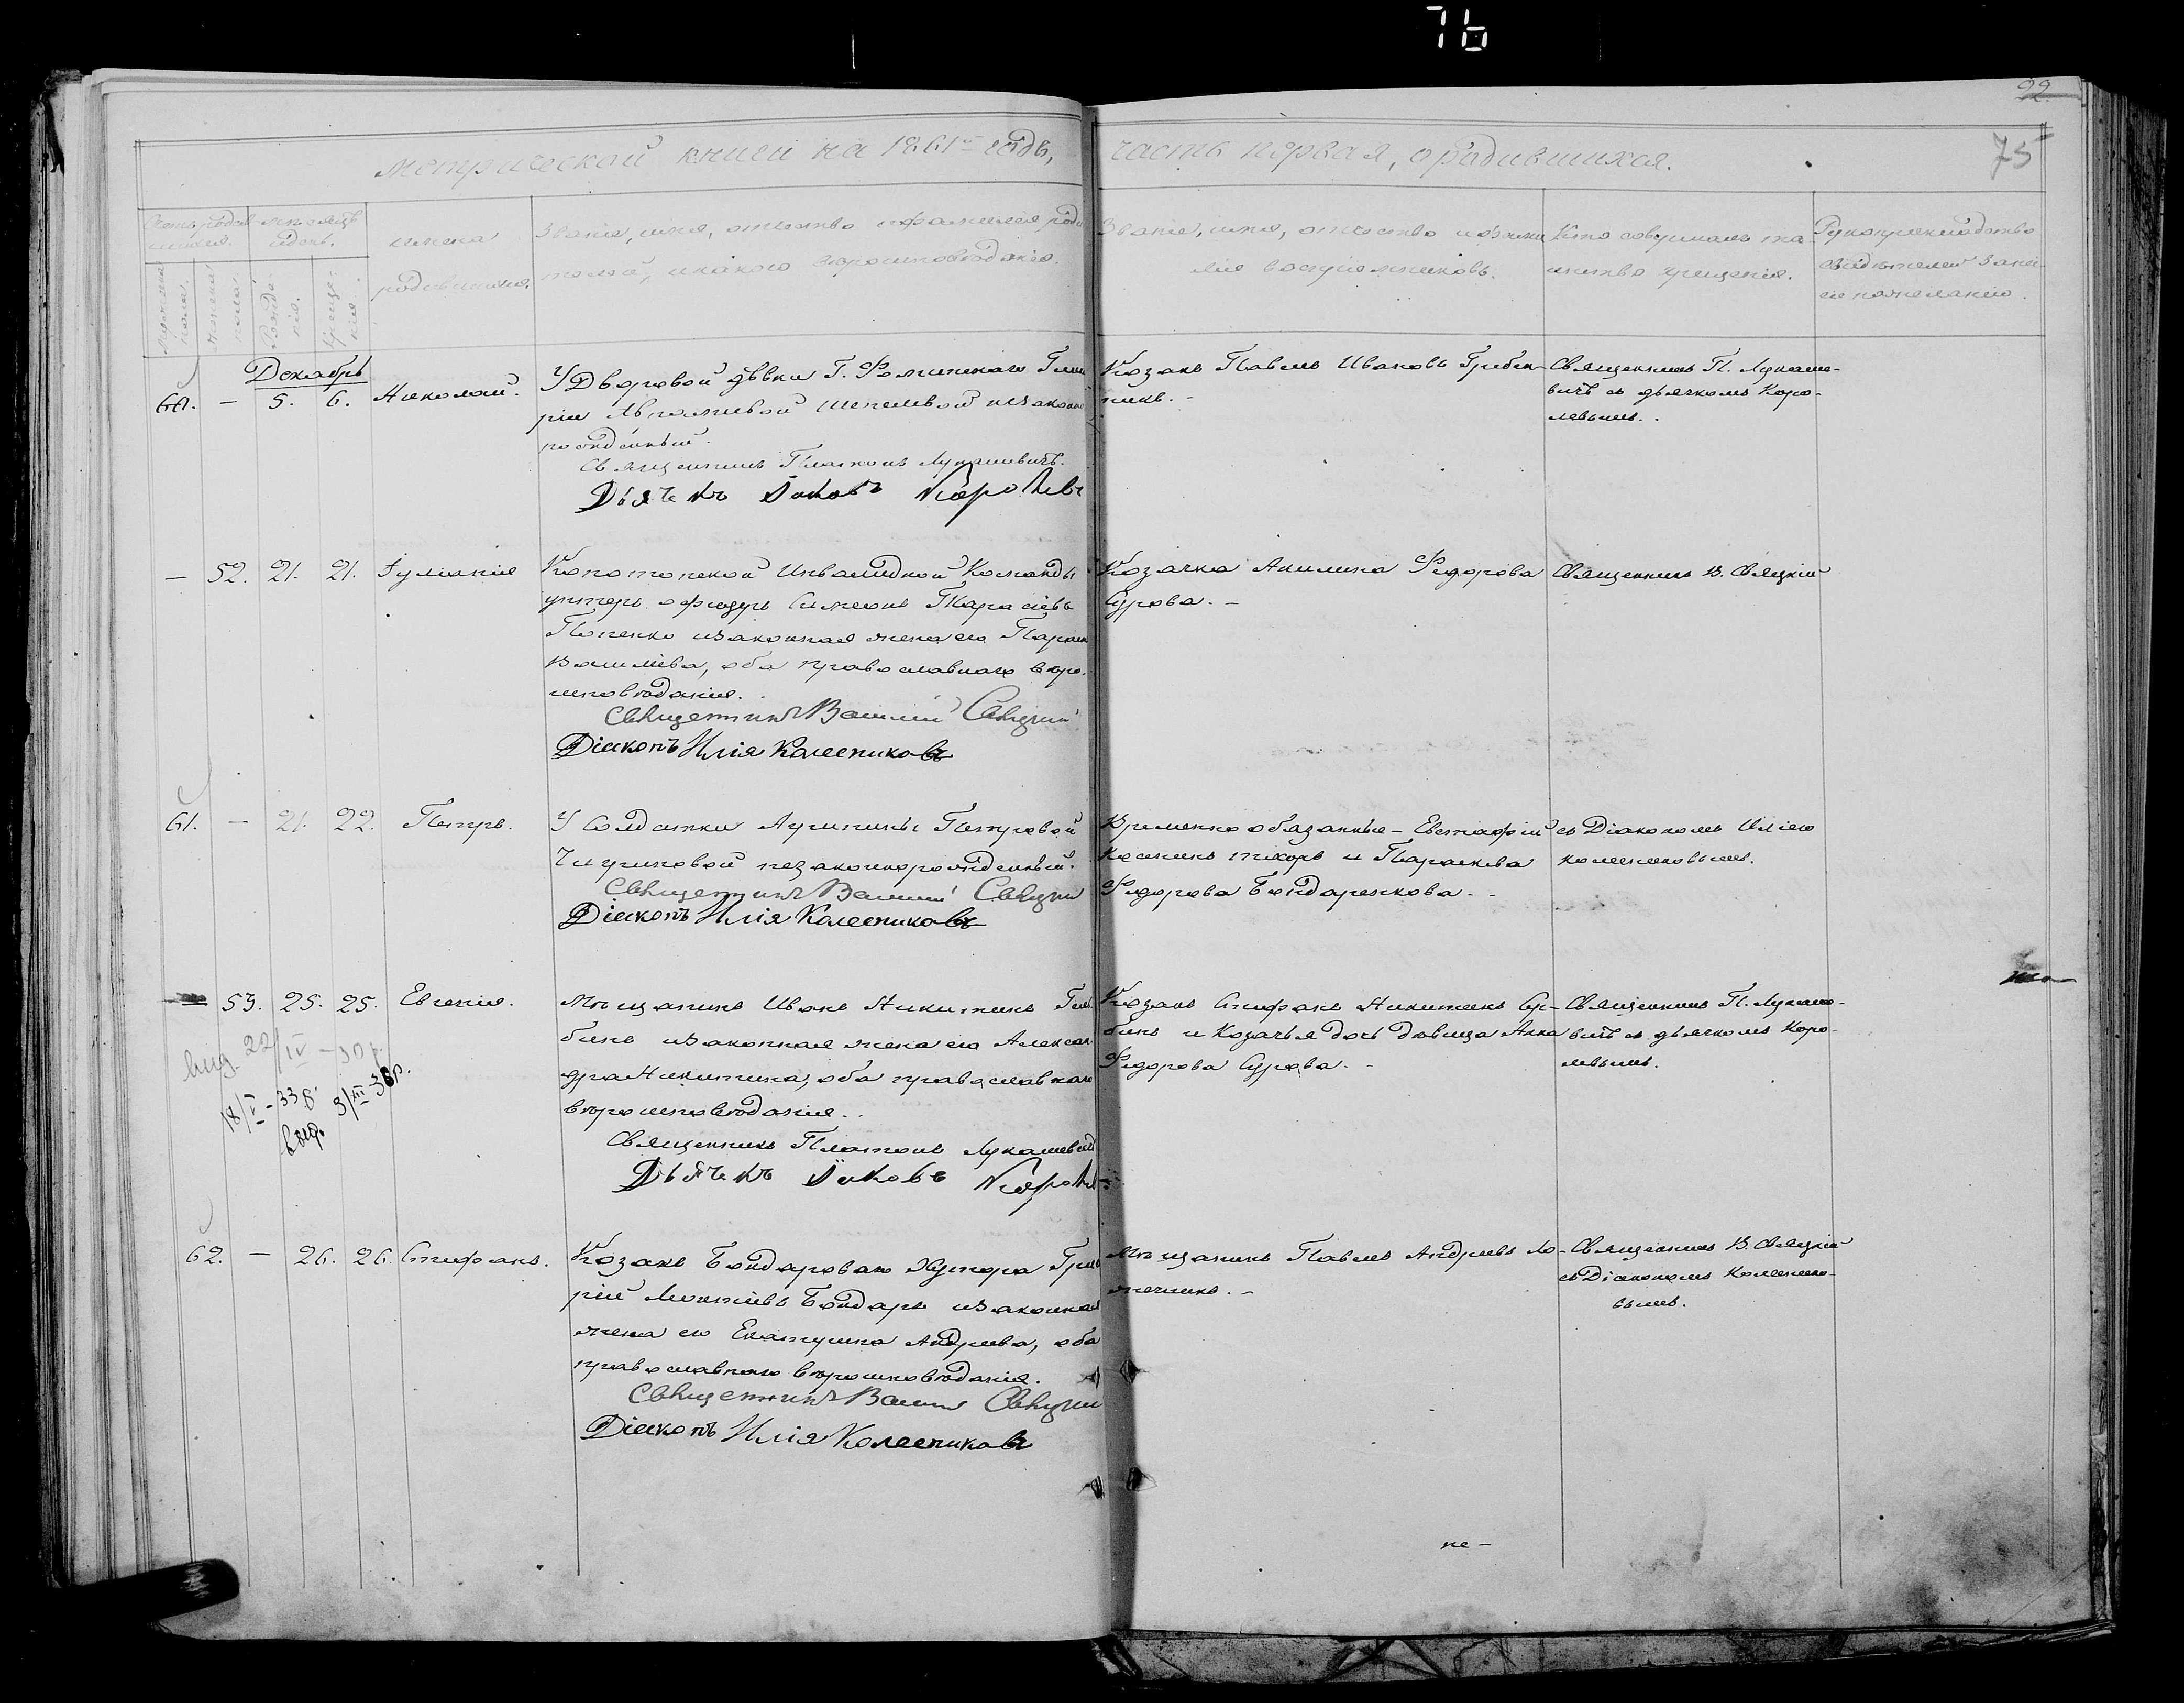 76
22.
75
Метрической книги на 1861й годъ, часть первая, о родившихся.
Мѣсяцъ и день.
Имена родившихся.
Званіе, имя, отчество и фамилія роди-
телей, и какого вѣроисповѣданія.
Званіе, имя, отчество и фами-
лія воспріемниковъ.
Кто совершалъ та-
инство крещенія.
Рукоприкладство
свидѣтелей записи
по желанію.
Мужеска пола.
Женска пола.
Рожде-
нія.
Креще-
нія.
Декабрь
60. — 5. 6. Николай.
У Дворовой дѣвки Г.
незаконно
рожденный.
Священникъ Платонъ Лукашевичъ.
Дьячекъ Іаковъ Королевъ
Козакъ Павелъ Ивановъ Гребен-
никъ. -
Священникъ П. Лукаше-
вичъ съ дьячкомъ Коро-
левымъ. .
— 52. 21. 21. Іуліанія
Конотопской Инвалидной Команды
унтеръ офицеръ Симеонъ Тарасіевъ
Попенко и законная жена его Параск
Васильева, оба православнаго вѣро-
исповѣданія.
Священникъ Василій Свяцкій
Діаконъ Илія Колесниковъ
Козачка Акилина Федорова
Сурова. -
Священникъ В. Свяцкій
61. — 21. 22. Петръ.
У Солдатки Агрипины Петровой
незаконнорожденный.
Священникъ Василій Свяцкій
Діаконъ Илія Колесниковъ
Временно обязанные - Евстафій
и Параскева
Федорова Бондаренкова. -
съ Діакономъ Иліею
Колесниковымъ.
— 53. 25. 25. Евгенія.
Мѣщанинъ Иванъ Никитинъ
бинъ и законная жена его Алексан-
дра Никитина, оба православнаго
вѣроисповѣданія. .
Священникъ Платонъ Лукашевичъ
Дьячекъ Іаковъ Королевъ
Козакъ Стефанъ Никитинъ
и Козачья дочь дѣвица Анна
Федорова Сурова. -
Священникъ П. Лукаше-
вичъ съ дьячкомъ Коро-
левымъ.
вид. 22/IV - 30 р.
18/V - 33 р.
вид.
9/III 38 р.
62. — 26. 26. Стефанъ.
Козакъ Бондареваго Хутора Григо
рій Бондарь и законная
жена его Екатерина Андреева, оба
православнаго вѣроисповѣданія.
Священникъ Василій Свяцкій
Діаконъ Илія Колесниковъ
Мѣщанинъ Павелъ Андреевъ Ло-
жечникъ. -
Священникъ В. Свяцкій
съ Діакономъ Колеснико-
вымъ.
не -